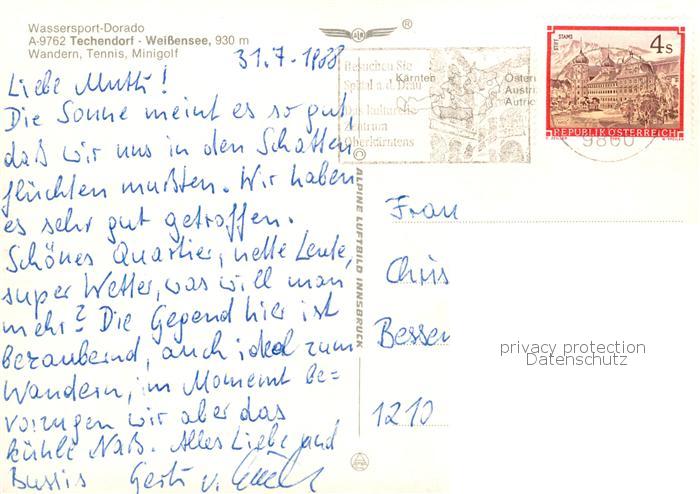 Wassersport-Dorado
A-9762 Techendorf - Weißensee, 930 m
Wandern, Tennis, Minigolf
31.7-1988
Liebe Mutti!
Die Sonne meint es so gut,
daß wir uns in den Schatten
flüchten mußten. Wir haben
es sehr gut getroffen.
Schönes Quartier, nette Leute,
super Wetter, was will man
mehr? Die Gegend hier ist
bezaubernd, auch ideal zum
Wandern, im Moment be=
vorzugen wir aber das
kühle Naß. Alles Liebe und
Bussis Gerti u.
ALPINE LUFTBILD INNSBRUCK
®
Besuchen Sie
Spittal a. d. Drau
Das kulturelle
Zentrum
Oberkärntens
Kärnten
Österr
Austri
Autric
STIFT STAMS
4 S
REPUBLIK ÖSTERREICH
9800
Frau
Chris
Besser
1210
privacy protection
Datenschutz